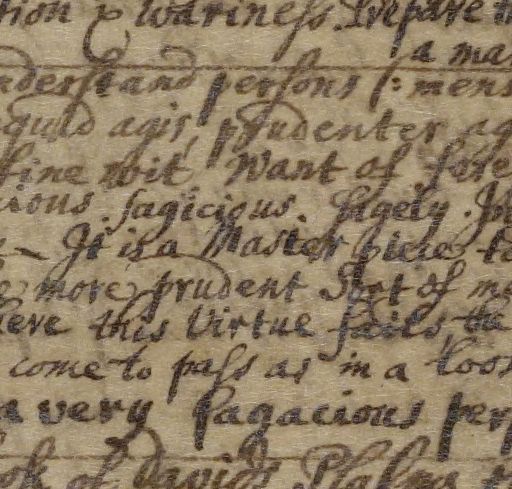 tion & wariness. Prepare th
a man
nderstand persons (: mens
quid agis, prudenter ag
fine wit Want of fore
cious sagicious. sagely. In
It is a Master piece to
more prudent Sort of me
here this Virtue fails, the
come to pass as in a loos
a very sagacious pers
ok of David's Psalms